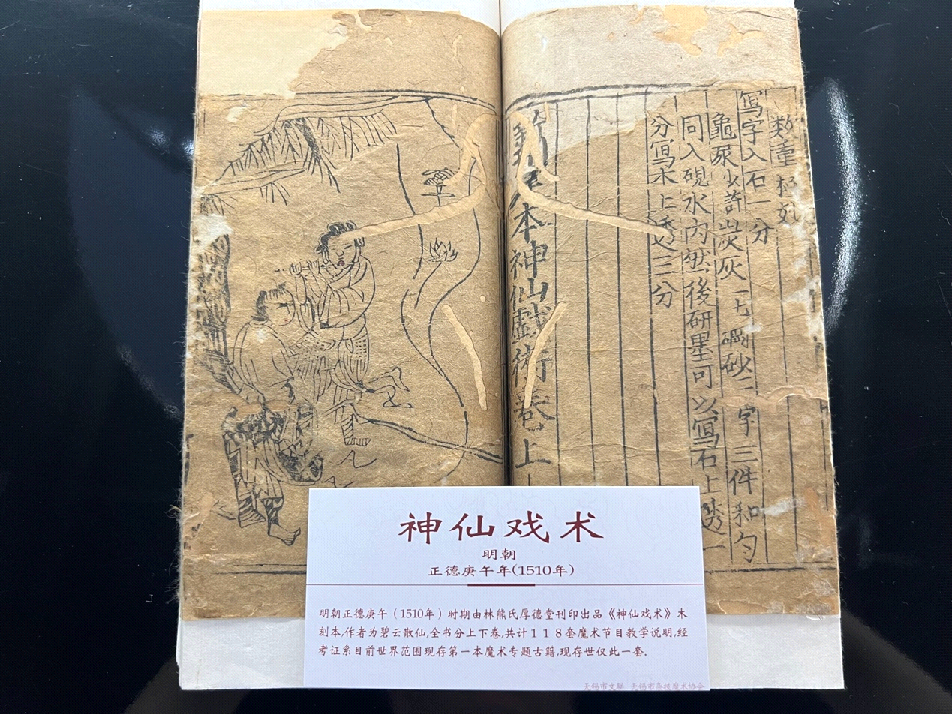 寫字入石一分
龜尿少許炭灰一匕砂二字三件和勻
同入硯水內然後研墨可以寫石上透一
分寫木上透二三分
新本神仙戲術卷上
神仙戏术
明朝
正德庚午年(1510年)
明朝正德庚午（1510年）时期由林熊氏厚德堂刊印出品《神仙戏术》木
刻本,作者为碧云散仙,全书分上下卷,共计１１８套魔术节目教学说明,经
考证系目前世界范围现存第一本魔术专题古籍,现存世仅此一套.